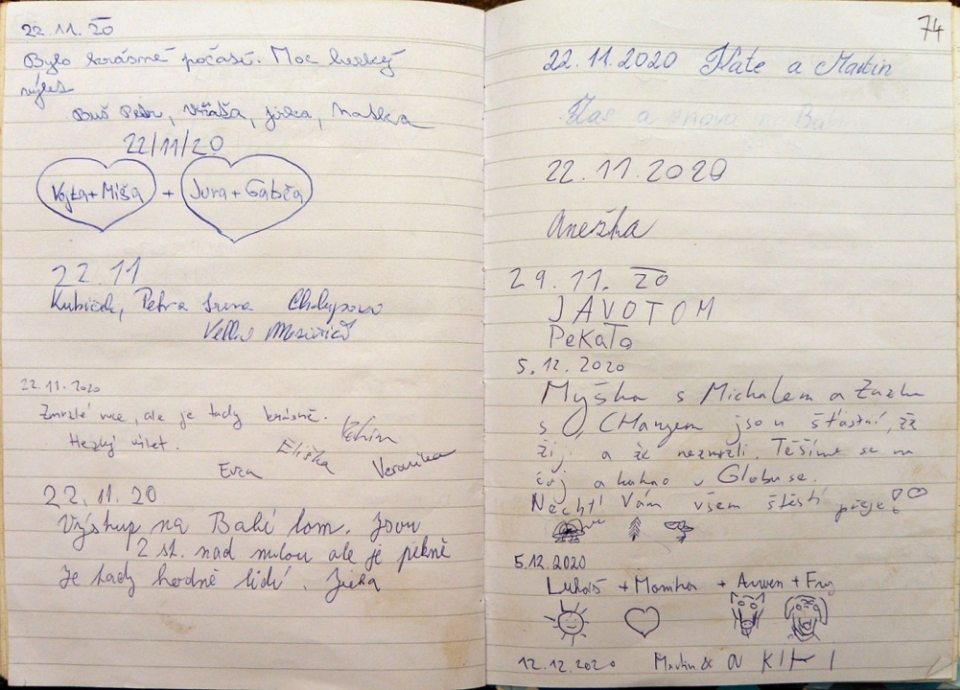 22.11.20
Bylo krásné počasí. Moc hezký
výlet
Petr, Jirka,
22/11/20
Vojta+Míša + Jura+Gabča
22.11
Kubíček, Petra
22.11.2020
Zmrzlé ruce, ale je tady krásně.
Hezký výlet. Eliška
Eva Veronika
22.11.20
Výstup na Babí lom. Jsou
2 st. nad nulou ale je pěkně
Je tady hodně lidí. Jirka
74
22.11.2020 Kate a Martin
Zas a znova
22.11.2020
Anežka
29.11.20
JAVOTOM
PeKaTo
5.12.2020
Myška s Michalem a
s jsou šťastní, že
žijí a že nezmrzli. Těšíme se na
čaj a kakao v Globuse.
Nechť Vám všem štěstí přeje!
5.12.2020
Lukáš + Monika + Arwen +
12.12.2020 Martin &